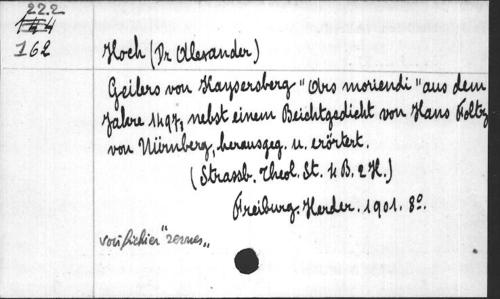 22.2
144
162
Hoch (Dr Alexander)
Geilers von Kaysersberg "Ars moriendi" aus dem
Jahre 1497, nebst einem Beichtgedicht von Hans Foltz
von Nürnberg, herausgeg. u. erörtert.
(Strassb. Theol. St. 4 B. 2 H.)
Freiburg. Herder. 1901. 8º.
voir fichier "revues"